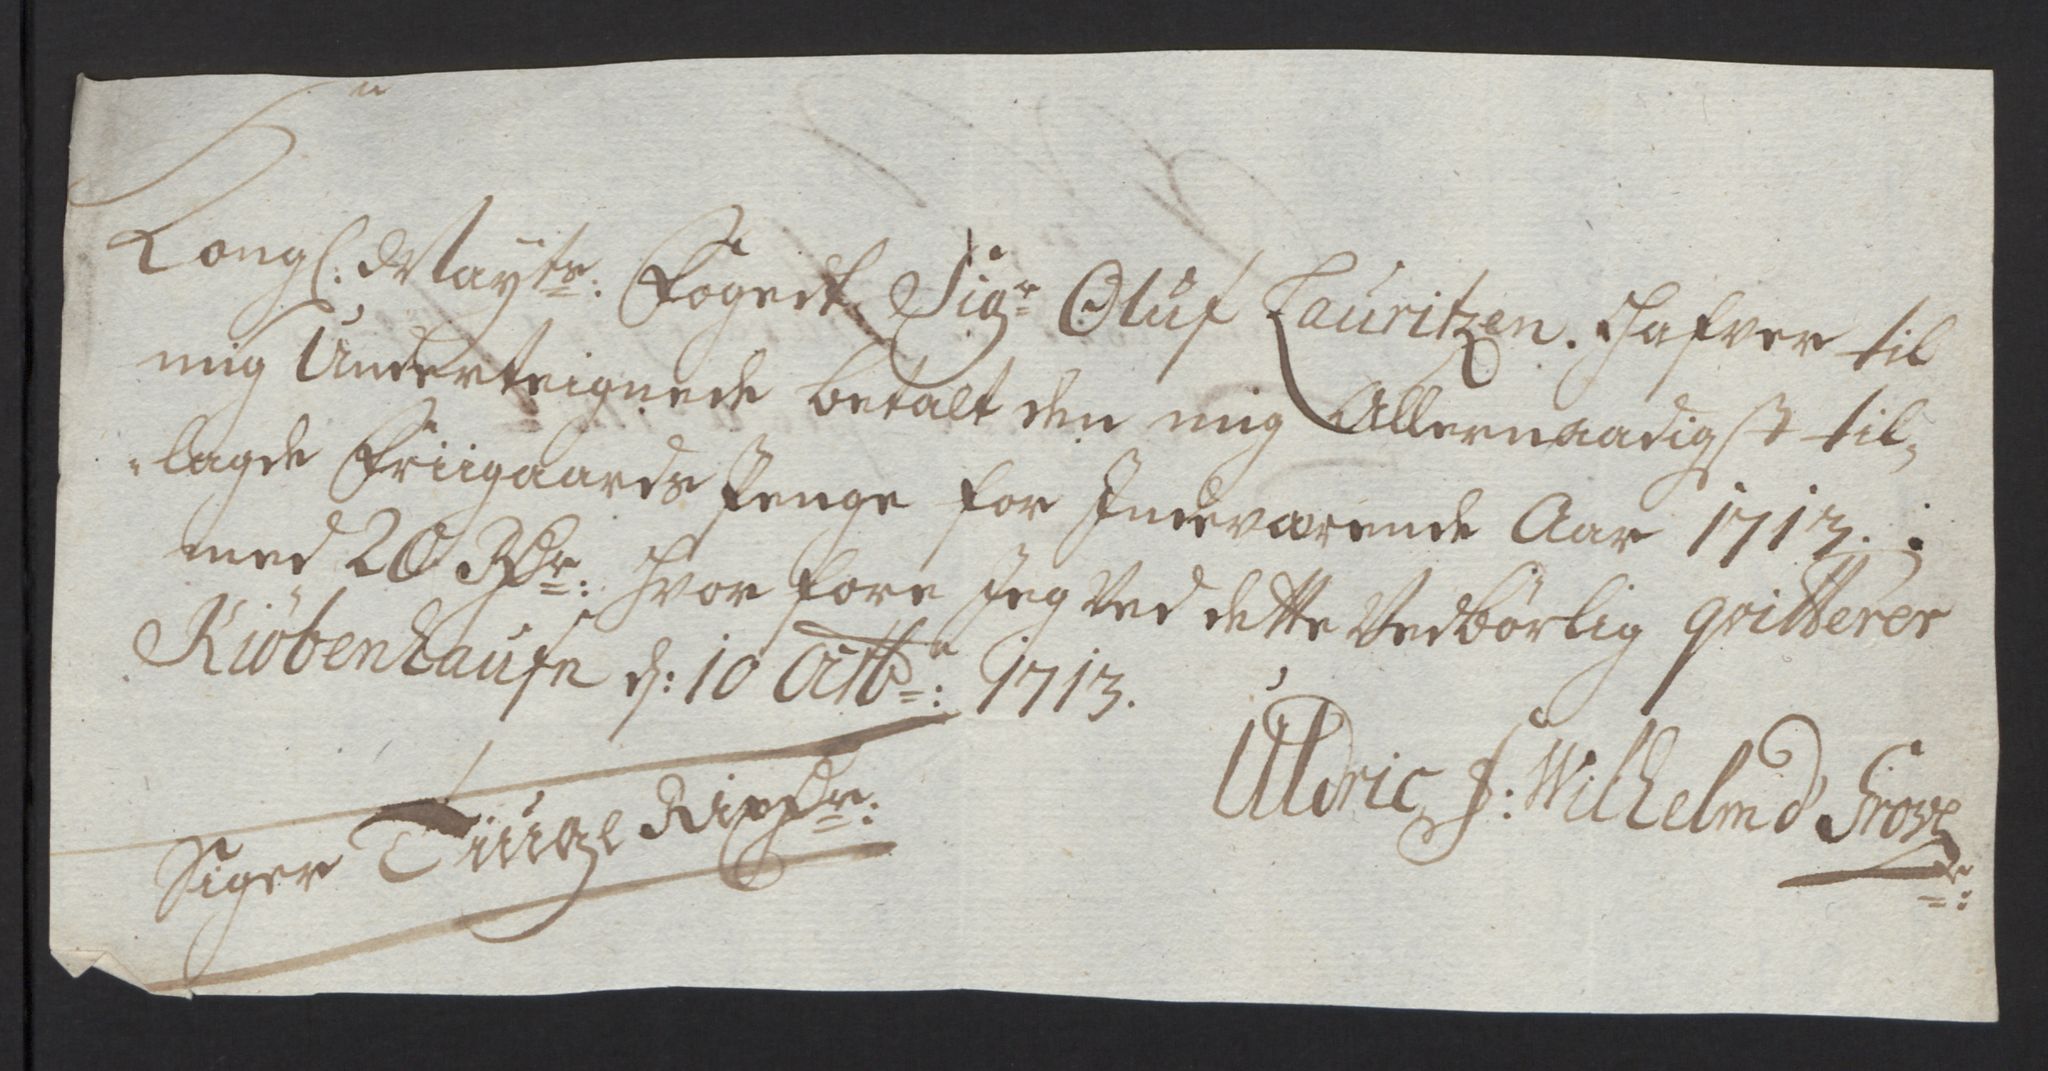 Kongl: Mayts: Foged Sigr Oluf Lauritzen. Hafver til
mig Underteignede betalt den mig Allernaadigst til,,
,,lagde Friigaards Penge for Indeværende Aar 1713.
med 20 Rdr: Hvor fore Jeg Ved dette Vedbörlig qvitterer
Kiöbenhaufn d: 10 Octbr: 1713.
Uldric F: Wilhelm d' Grove
Siger Rixdr: